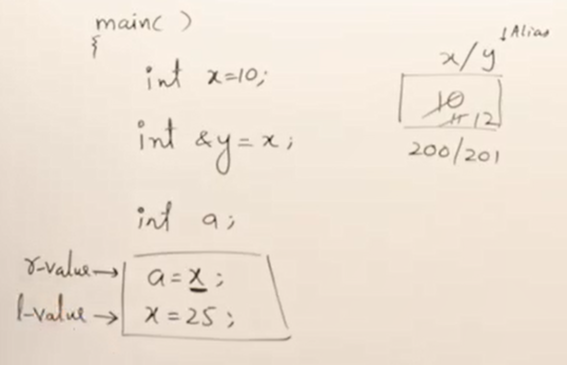 main( )
{
int x=10;
int &y=x;
int a;
r-value→ a=x;
l-value → x=25;
↓Alias
x/y
10
11 12
200/201